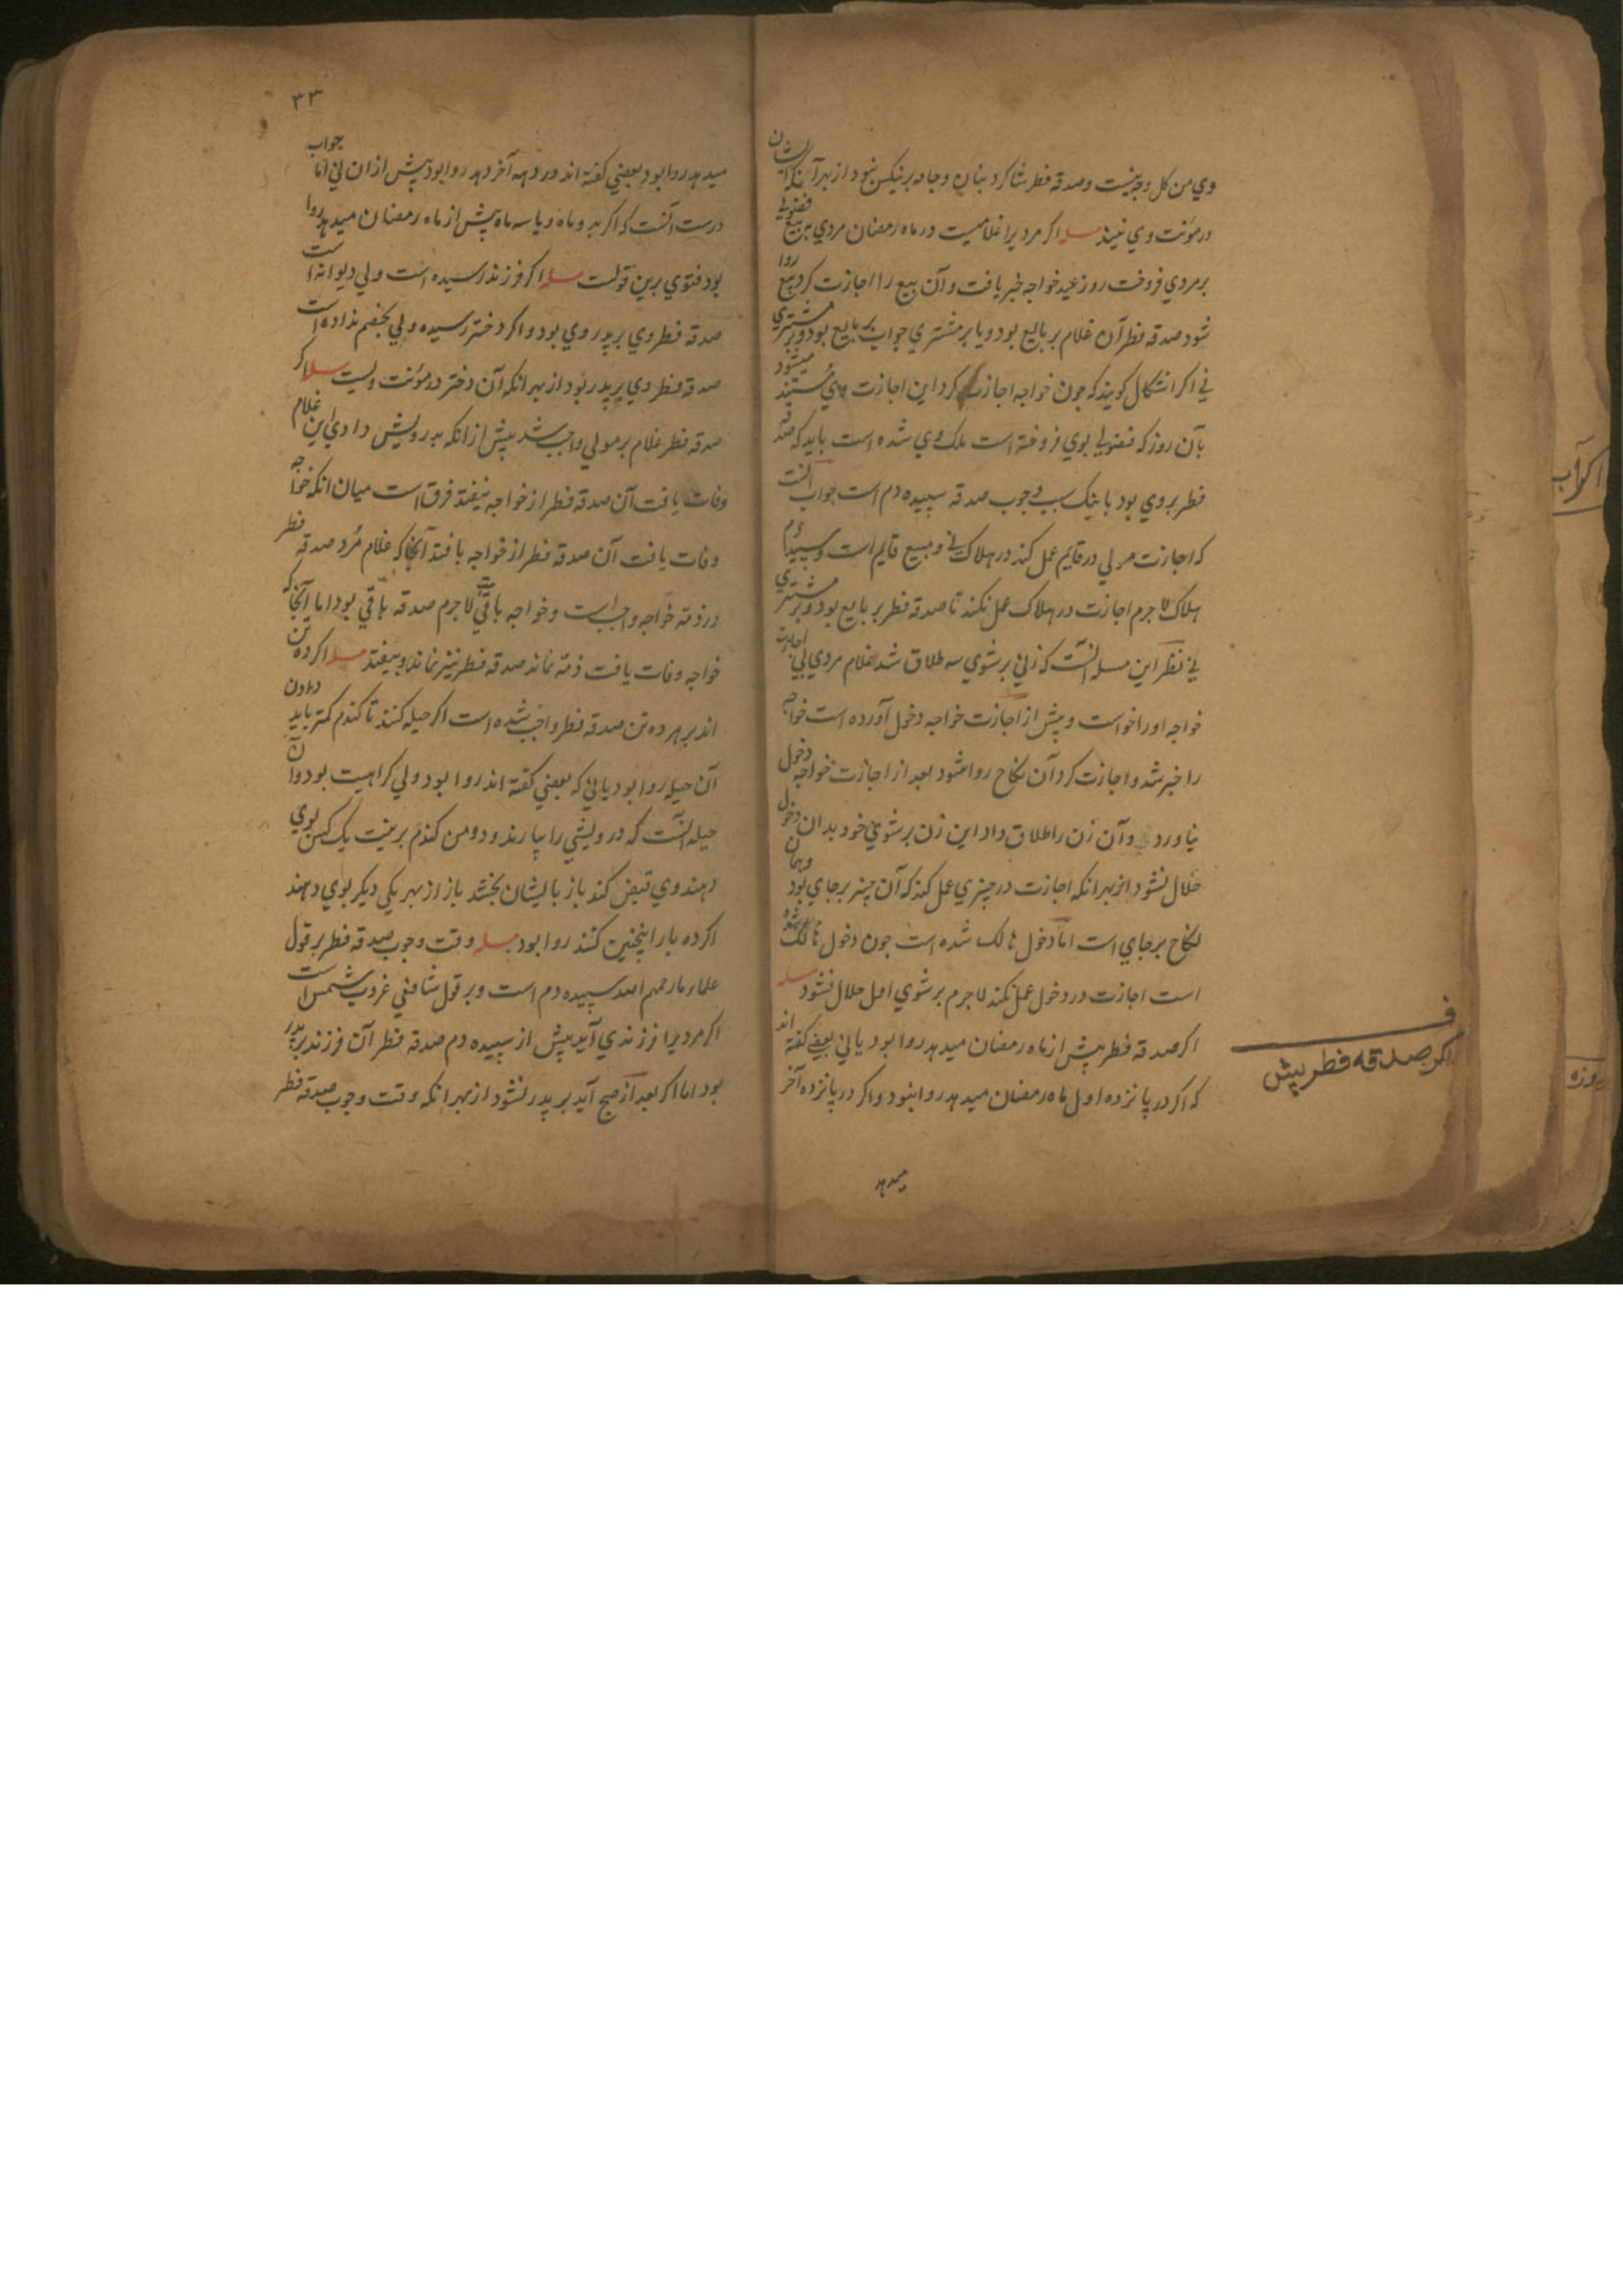 وي من كل وجه نيست وصدقه فطر شاكردبنان وجامه برنيكس نبود از بهر آنكه ايشان
درمؤنت وي نيند مسله اكر مرديرا غلاميست درماه رمضان مردي به بيع فضولي
برمردي فروخت روز عيد خواجه خبر يافت وآن بيع را اجازت كرد بيع روا
شود صدقه فطر آن غلام بر بايع بود ويا بر مشتري جواب بر بايع بود وبر مشتري
ني اكر اشكال كويند كه چون خواجه اجازت كرد اين اجازت مستند ميشود
بآن روز كه فضولي بوي فروخته است ملك وي شده است بايد كه صدقه
فطر بروي بود بآنك سبب وجوب صدقه سپيده دم است جواب آنست
كه اجازت مولي درقايم عمل كند درهلاك ني ومبيع قايم است وسپيده دم
هلاك لاجرم اجازت درهلاك عمل نكند تا صدقه فطر بر بايع بود وبر مشتري
ني نظر اين مسله آنست كه زني برشوي سه طلاق شد غلام مردي بي اجازت
خواجه اورا خواست وپيش از اجازت خواجه دخول آورده است خواجه
را خبر شد واجازت كرد آن نكاح روا شود بعد از اجازت خواجه دخول
نياورد وآن زن را طلاق داد اين زن برشوي خود بدان دخول
حلال نشود از بهر انكه اجازت درچيزي عمل كند كه آن چيز برجاي بود وهمان
نكاح برجاي است اما دخول هالك شده است چون دخول هالك شده
است اجازت دردخول عمل نكند لاجرم برشوي اول حلال نشود مسله
اكر صدقه فطر پيش از ماه رمضان ميدهد روا بود ياني بعضي كفته اند
كه اكر در پانزده اول ماه رمضان ميدهد روا نبود واكر در پانزده آخر
ميدهد
ف
اكر صدقه فطر پيش
٣٣
ميدهد روا بود وبعضي كفته اند در دهه آخر دهد روا بود پيش از ان ني اما جواب
درست آنست كه اكر بدو ماه ويا سه ماه پيش از ماه رمضان ميدهد روا
بود فتوي برين قولست مسله اكر فرزند رسيده است ولي ديوانه است
صدقه فطر وي بر پدر وي بود واكر دختر رسيده ولي بخصم نداده است
صدقه فطر وي بر پدر بود از بهر انكه آن دختر درمؤنت ويست مسله اكر
صدقه فطر غلام برمولي واجب شد پيش از انكه بدرويش دادي اين غلام
وفات يافت آن صدقه فطر از خواجه نيفتد فرق است ميان انكه خواجه
وفات يافت آن صدقه فطر از خواجه بافتد آنجا كه غلام مُرد صدقه فطر
درذمّه خواجه واجب است وخواجه باقي لاجرم صدقه باقي بود اما آنجا كه
خواجه وفات يافت ذمّه نماند صدقه فطر نيز نماند وبيفتد مسله اكر ده تن
اند برهر ده تن صدقه فطر واجب شده است اكر حيله كنند تا كندم كمتر بايد دادن
آن حيله روا بود ياني كه بعضي كفته اند روا بود ولي كراهيت بود وآن
حيله آنست كه درويشي را بيارند ودو من كندم برنيت يك كس بوي
دهند وي قبض كند باز باايشان بخشد باز از بهر يكي ديكر بوي دهند
اكر ده بار اينچنين كنند روا بود مسله وقت وجوب صدقه فطر برقول
علماء ما رحمهم الله سپيده دم است وبرقول شافعي غروب شمس است
اكر مرديرا فرزندي آيد پيش از سپيده دم صدقه فطر آن فرزند بر پدر
بود اما اكر بعد از صبح آيد بر پدر نشود از بهر انكه وقت وجوب صدقه فطر